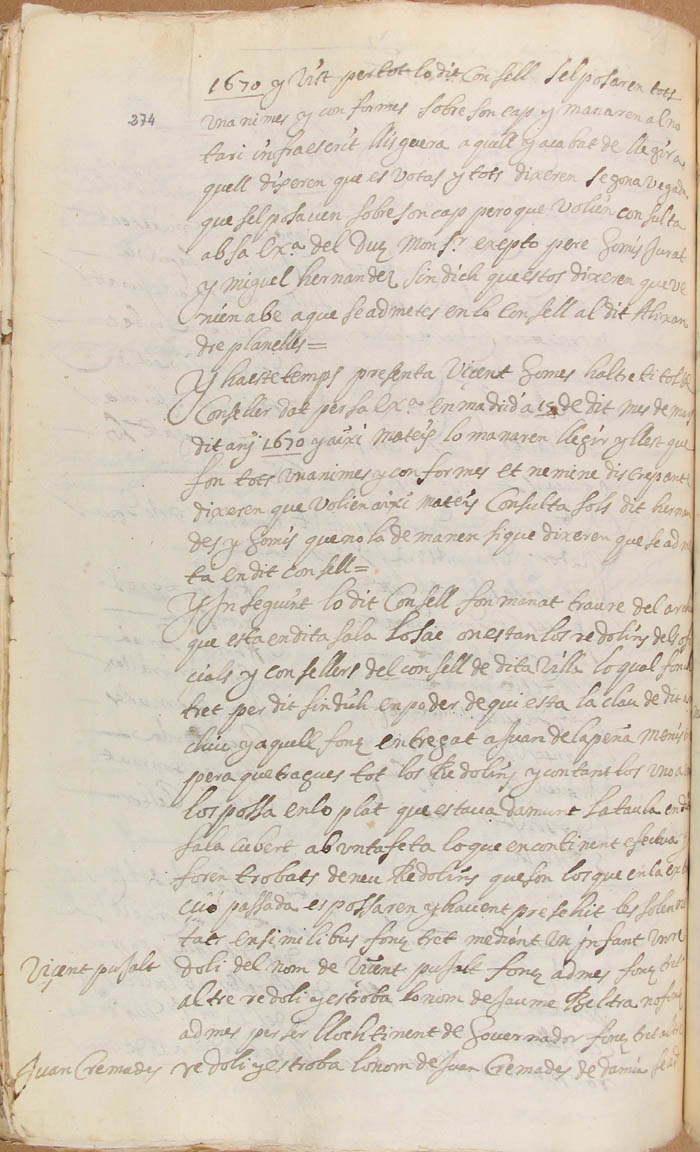 274
1670 y vist per tot lo dit Consell sel posaren tots
Unanimes y conformes sobre son cap y manaren al no
tari infraescrit llisquera aquell y acabat de llegir a
quell dixeren que es votas y tots dixeren segona vegada
que sel posaven sobre son cap pero que volien consulta
ab sa Exª. del Duq. Mon sr. exepto pere Gomis Jurat
y miguel hernandez sindich que estos dixeren que ve
nien abe a que se admetes en lo Consell al dit Alixan
dre planelles=
Y ha este temps presenta Vicent Gomes haltre titol de
Conseller dat per sa Exª. en madrid a 15 de dit mes de
dit any 1670 y aixi mateix lo manaren llegir y llest que
fon tots unanimes y conformes et nemine discrepant
dixeren que volien aixi mateix Consulta sols dit hernan
des y Gomis que no la demanen si que dixeren que se adm
ta en dit consell=
Y Inseguint lo dit Consell fon manat traure del
que esta en dita sala lo sac on estan los redolins dels of
cials y consellers del consell de dita Villa lo qual fon
tret per dit sindich en poder de qui esta la clau de dit
y aquell fonq entregat a Juan de la peña
pera que tragues tot los Redolins y contant los uno a
los possa en lo plat que estava damunt la taula en d
sala cubert ab un tafeta lo que encontinent efectua
foren trobats de neu Redolins que son los que en la
passada es possaren y havent presehit les solen
tats en similibus fonq tret mediant un infant un re
Viçent pujalt doli del nom de Vicent pujalt fonq admes fonq tret
altre redoli y es troba lo nom de Jaume Beltra no fonq
admes per ser llochtinent de Governador fonq tret altre
Juan Cremades redoli y es troba lo nom de Juan Cremades de damia